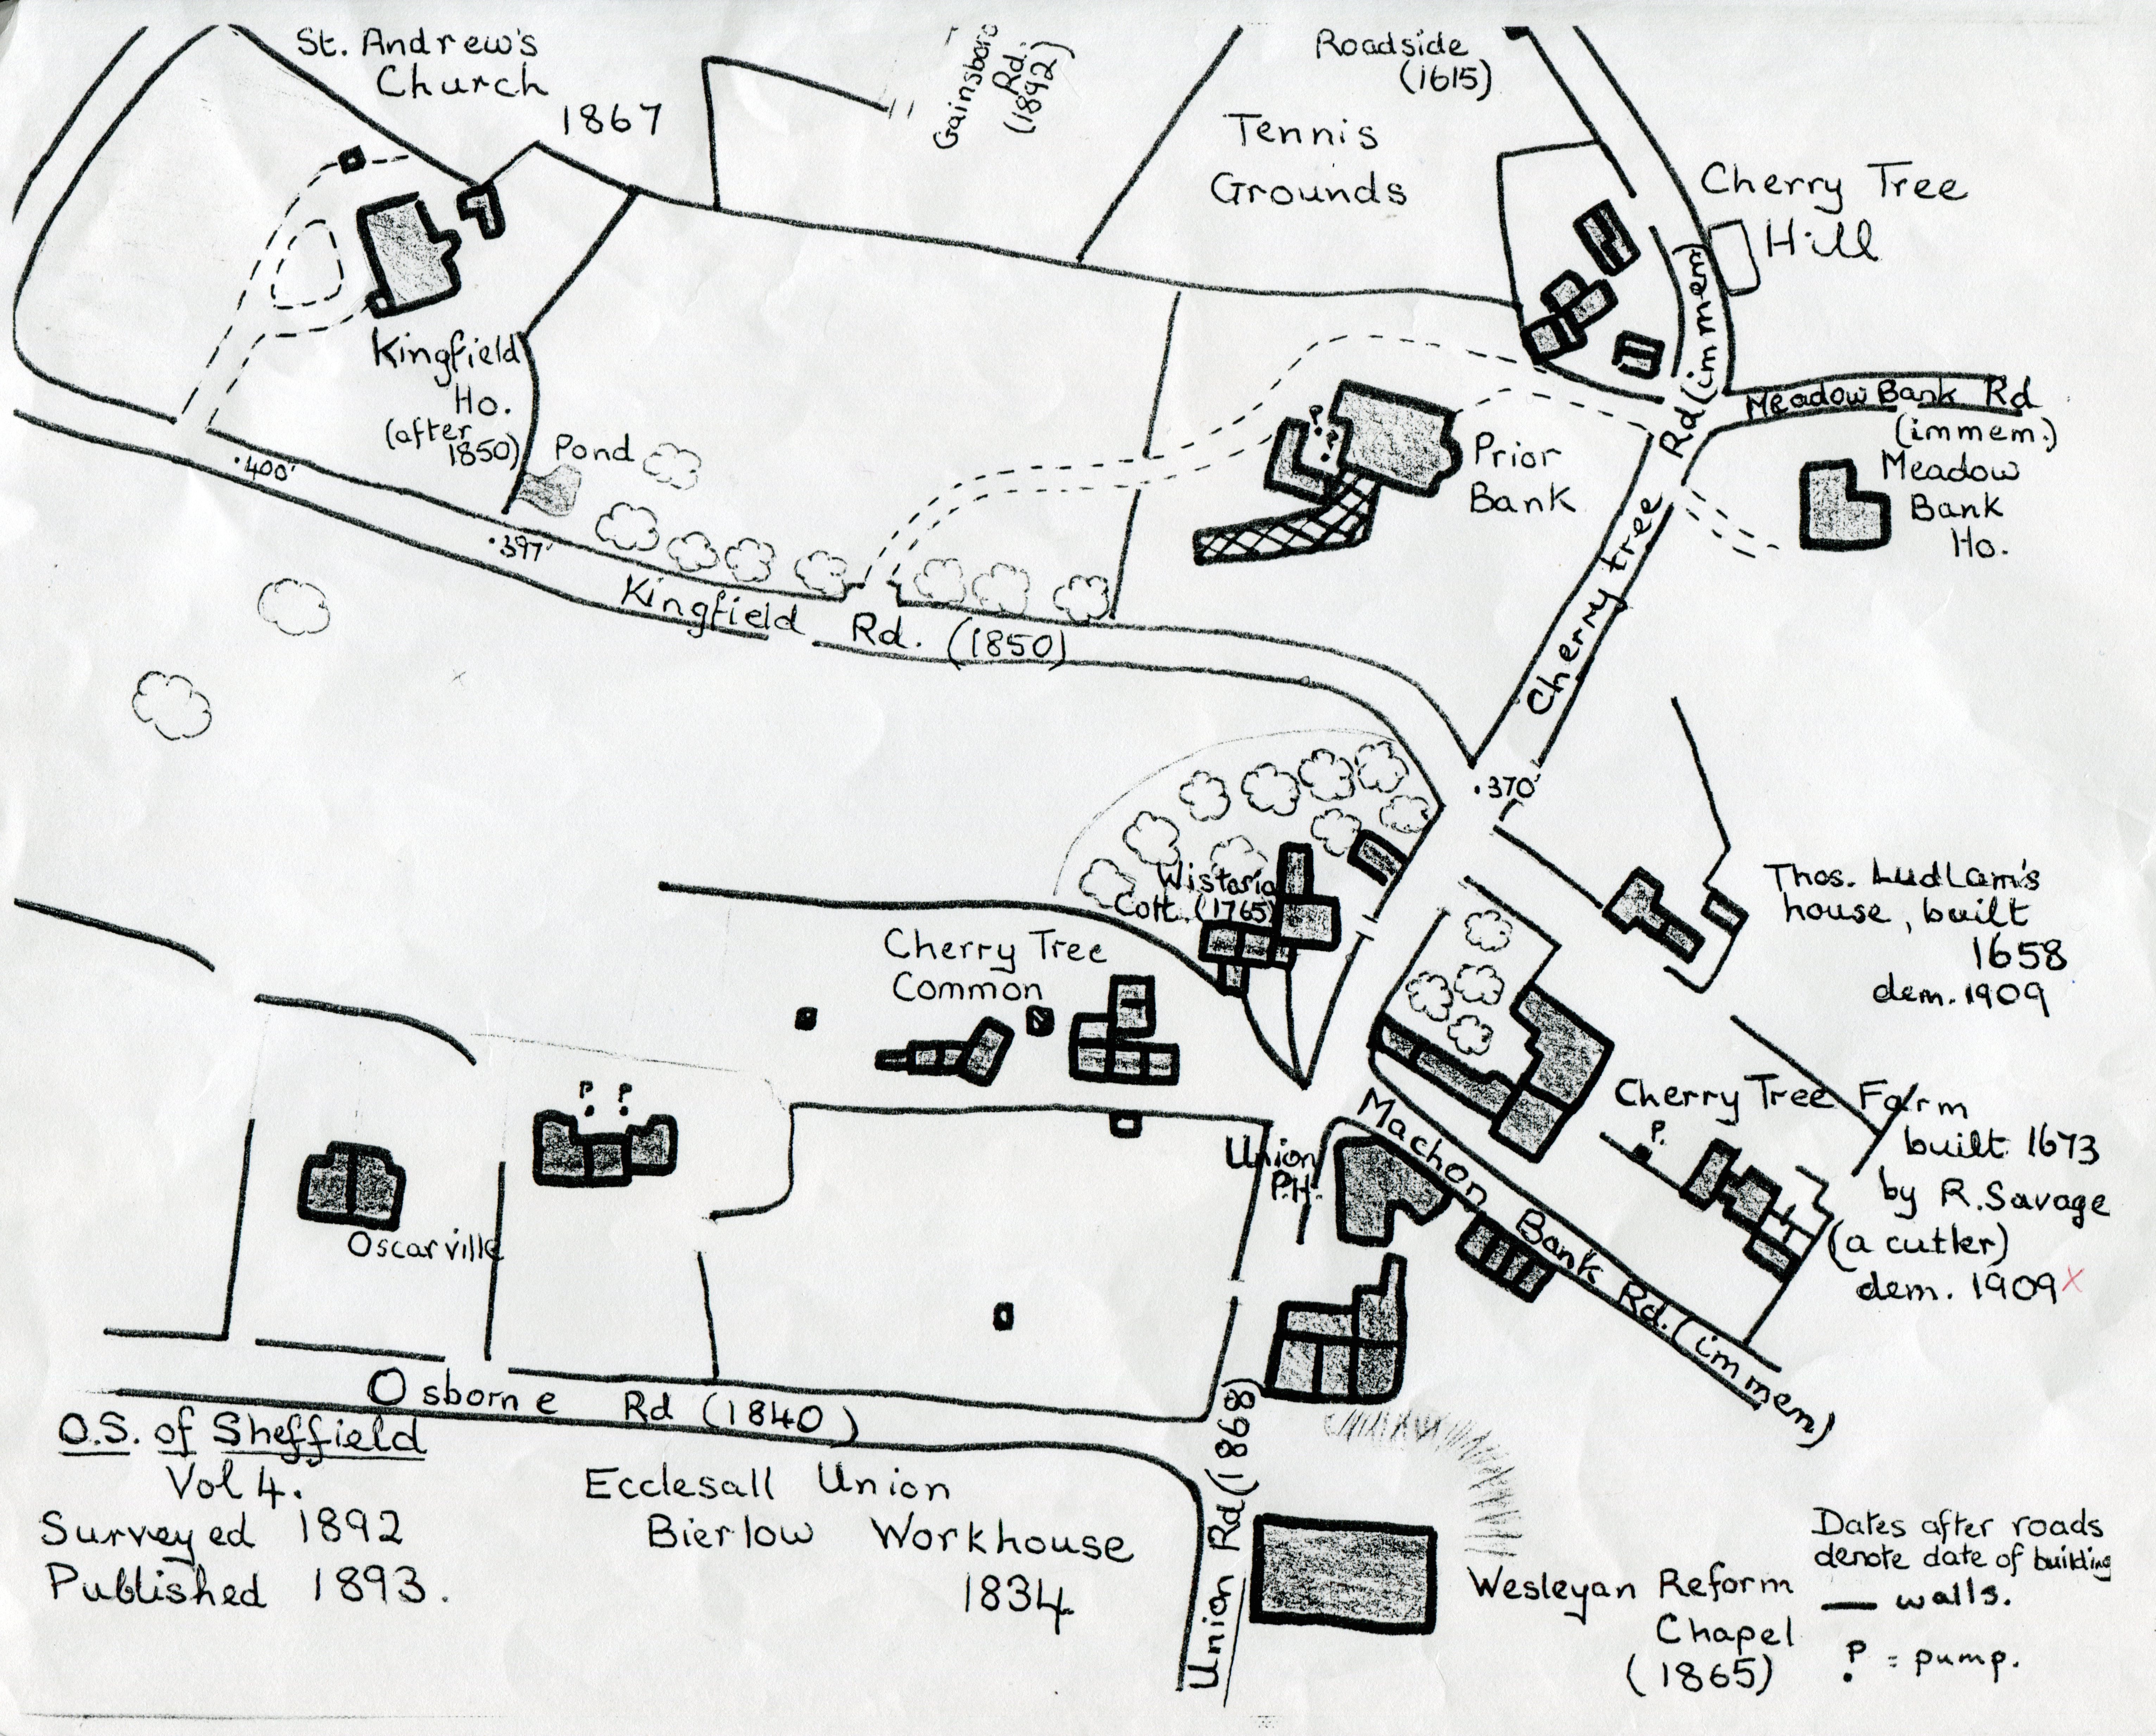 St. Andrew's
Church
1867
Gainsboro
Rd.
(1892)
Roadside
(1615)
Tennis
Grounds
Cherry Tree
Hill
Kingfield
Ho.
(after
1850)
Pond
P
P
Prior
Bank
Meadow Bank Rd
(immem.)
Meadow
Bank
Ho.
Cherry tree Rd (immem)
.400'
.397'
Kingfield Rd. (1850)
.370'
Wistaria
Cott. (1765)
Thos. Ludlam's
house, built
1658
dem. 1909
Cherry Tree
Common
P P
Oscarville
Union
P.H.
Machon Bank Rd. (immem)
P.
Cherry Tree Farm
built 1673
by R. Savage
(a cutler)
dem. 1909 x
Osborne Rd (1840)
Union Rd (1868)
O.S. of Sheffield
Vol 4.
Surveyed 1892
Published 1893.
Ecclesall Union
Bierlow Workhouse
1834
Wesleyan Reform
Chapel
(1865)
Dates after roads
denote date of building
— walls.
P = pump.